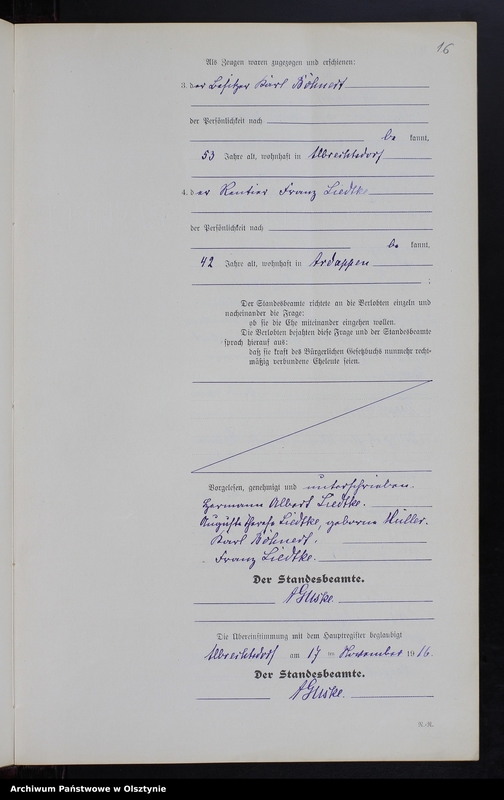 16
Als Zeugen waren zugezogen und erschienen:
3. der Besitzer Karl Böhnert
der Persönlichkeit nach
be kannt,
53 Jahre alt, wohnhaft in Albrechtsdorf
4. der Rentier Franz Liedtke
der Persönlichkeit nach
be kannt,
42 Jahre alt, wohnhaft in Ardappen
;
Der Standesbeamte richtete an die Verlobten einzeln und
nacheinander die Frage:
ob sie die Ehe miteinander eingehen wollen.
Die Verlobten bejahten diese Frage und der Standesbeamte
sprach hierauf aus:
daß sie kraft des Bürgerlichen Gesetzbuchs nunmehr recht-
mäßig verbundene Eheleute seien.
Vorgelesen, genehmigt und unterschrieben.
Hermann Albert Liedtke.
Auguste Therese Liedtke, geborne Müller.
Karl Böhnert.
Franz Liedtke.
Der Standesbeamte.
Guske.
Die Übereinstimmung mit dem Hauptregister beglaubigt
Albrechtsdorf am 17 ten November 1916.
Der Standesbeamte.
Guske.
R.-R.
Archiwum Państwowe w Olsztynie